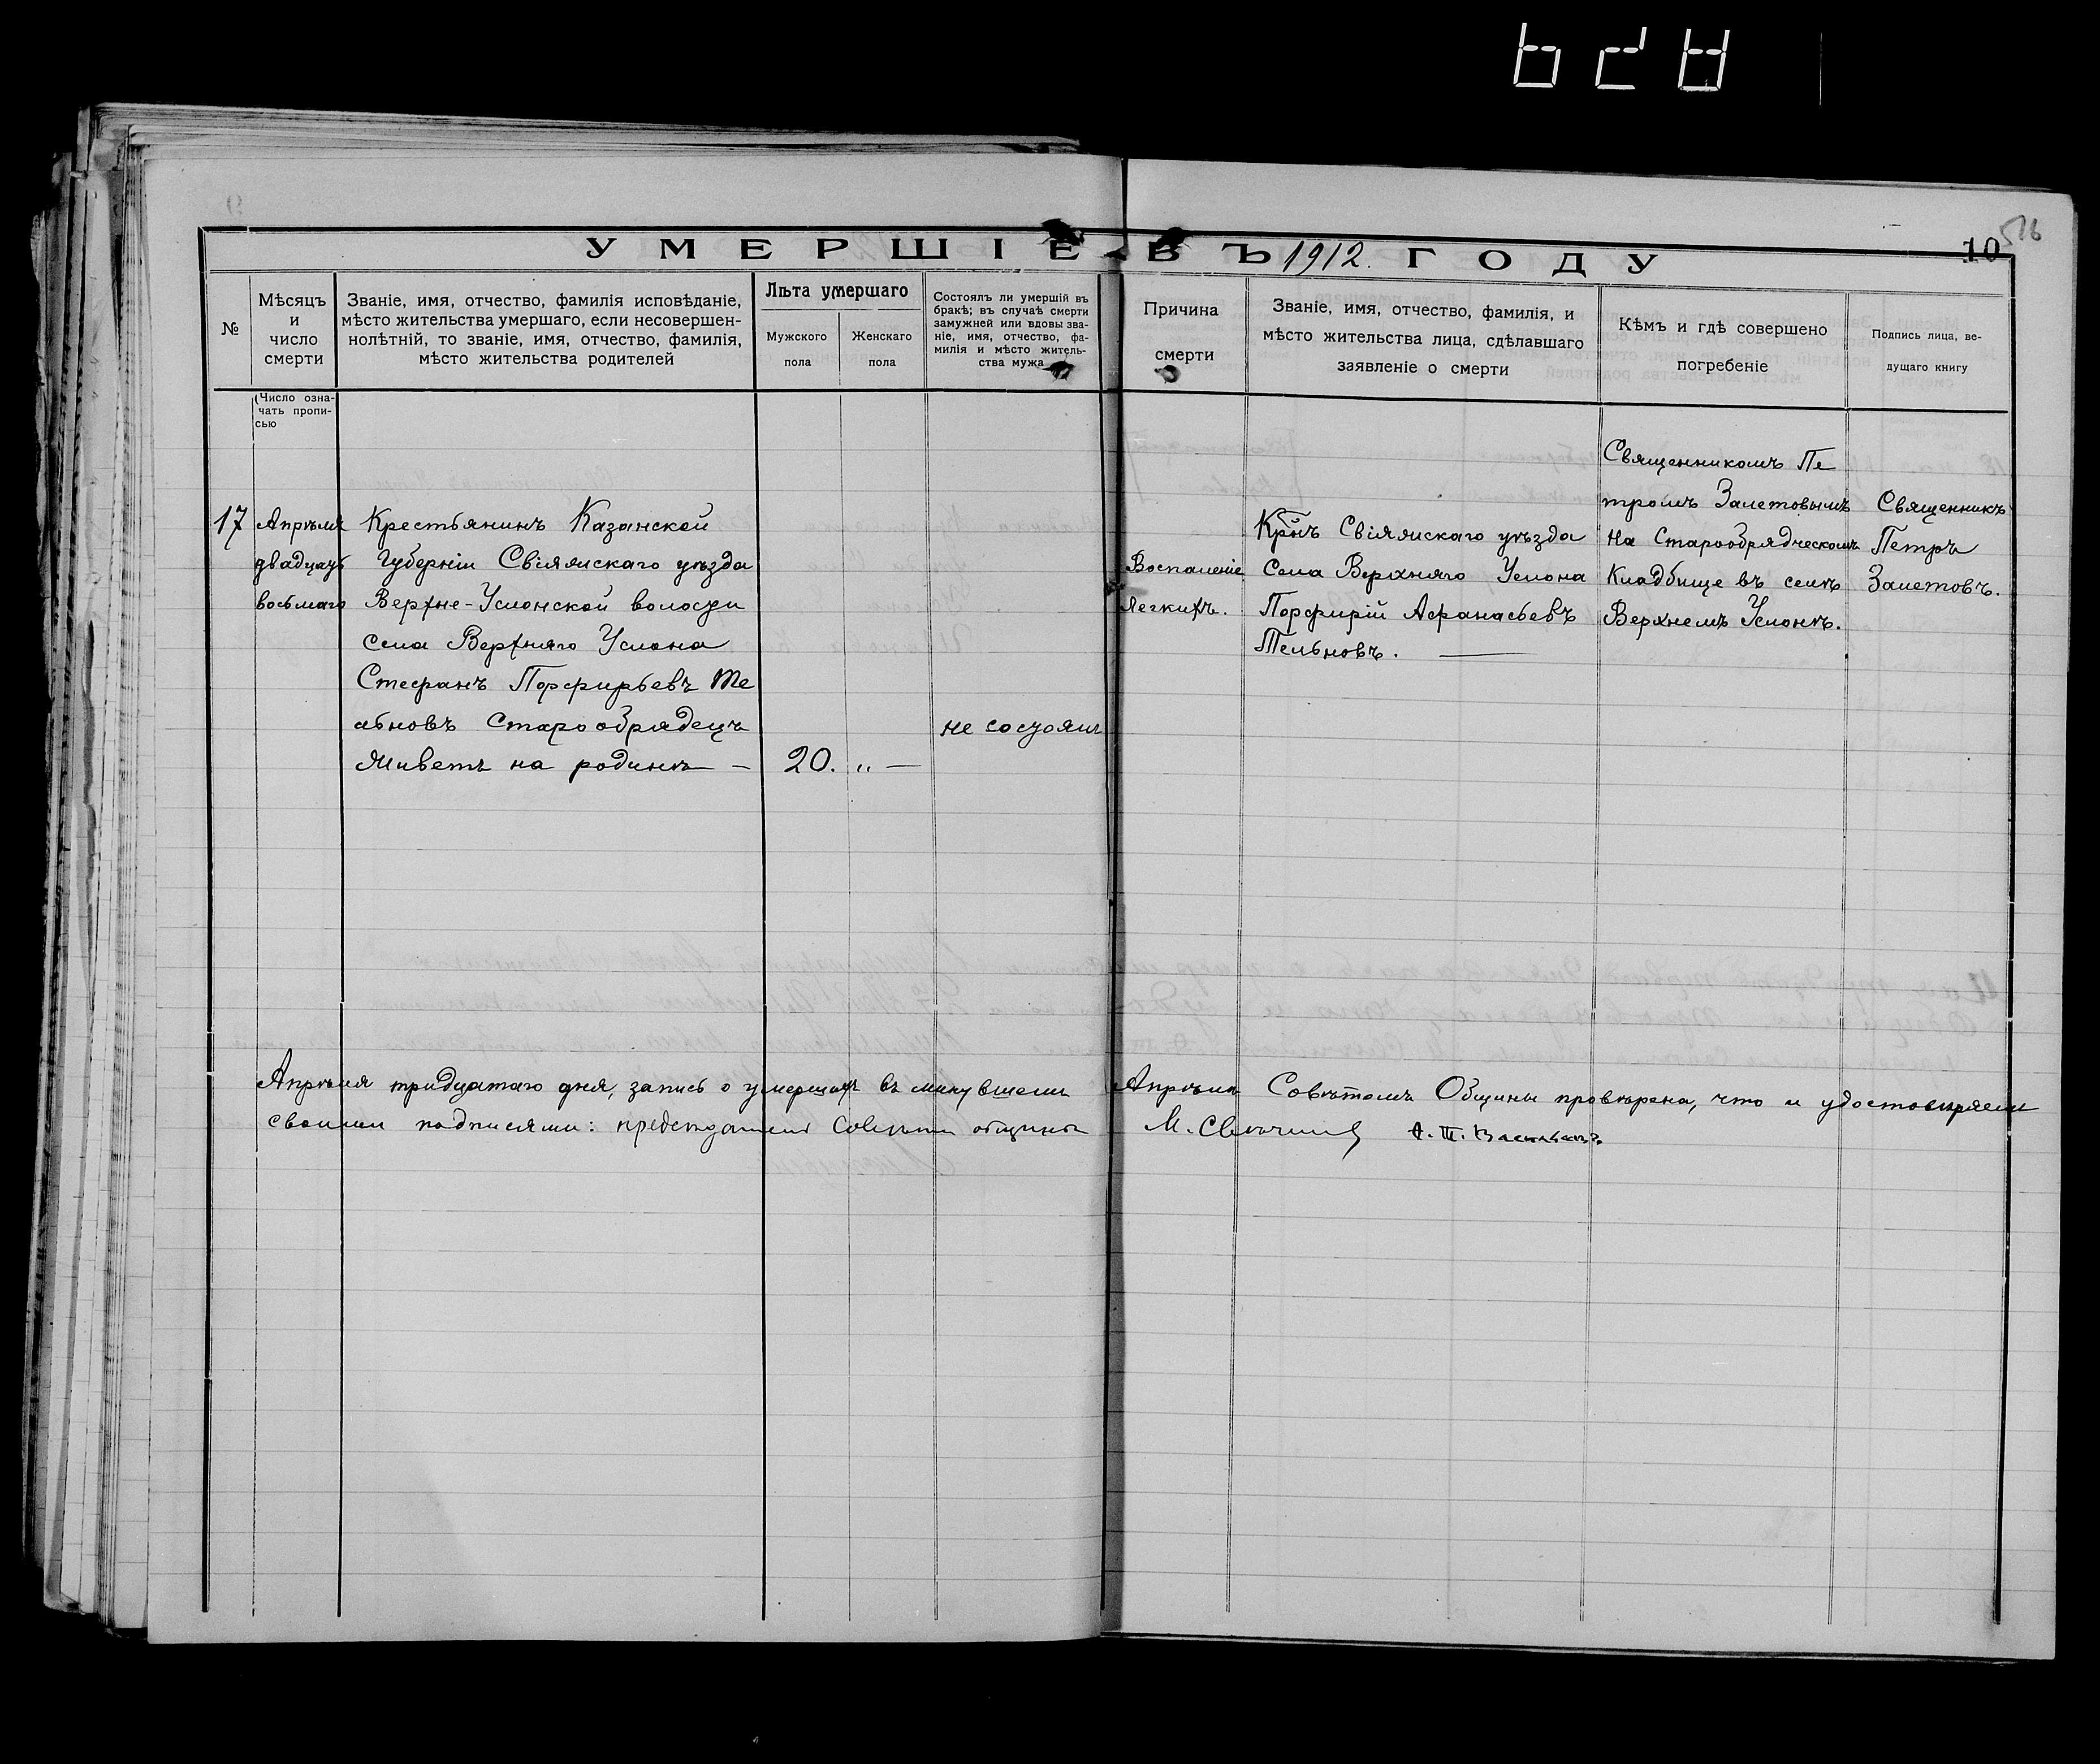 516
10
УМЕРШІЕ ВЪ 1912. ГОДУ
№
Мѣсяцъ
и
число
смерти
Званіе, имя, отчество, фамилія исповѣданіе,
мѣсто жительства умершаго, если несовершен-
нолѣтній, то званіе, имя, отчество, фамилія,
мѣсто жительства родителей
Лѣта умершаго
Мужского
пола
Женскаго
пола
Состоялъ ли умершій въ
бракѣ; въ случаѣ смерти
замужней или вдовы зва-
ніе, имя, отчество, фа-
милія и мѣсто житель-
ства мужа
Причина
смерти
Званіе, имя, отчество, фамилія, и
мѣсто жительства лица, сдѣлавшаго
заявленіе о смерти
Кѣмъ и гдѣ совершено
погребеніе
Подпись лица, ве-
дущаго книгу
(Число озна-
чать пропи-
сью
17
Апрѣля
двадцать
восьмаго
Крестьянинъ Казанской
Губерніи Свіяжскаго уѣзда
Верхне-Услонской волости
села Верхняго Услона
Стефанъ Порфирьевъ Те
льновъ Старообрядецъ
Живетъ на родинѣ —
20. „ —
не состоялъ
Воспаленіе
легкихъ.
Кр̃нъ Свіяжскаго уѣзда
Села Верхняго Услона
Порфирій Афанасьевъ
Тельновъ. —
Священникомъ Пе
тромъ Залетовымъ
На Старообрядческомъ
Кладбище въ селѣ
Верхнемъ Услонѣ.
Священникъ
Петръ
Залетовъ.
Апрѣля тридцатаго дня, запись о умершихъ въ минувшемъ Апрѣлѣ Совѣтомъ Общины провѣрена, что и удостовѣряемъ
своими подписями: председатель Совета общины М. А. П. Васильевъ